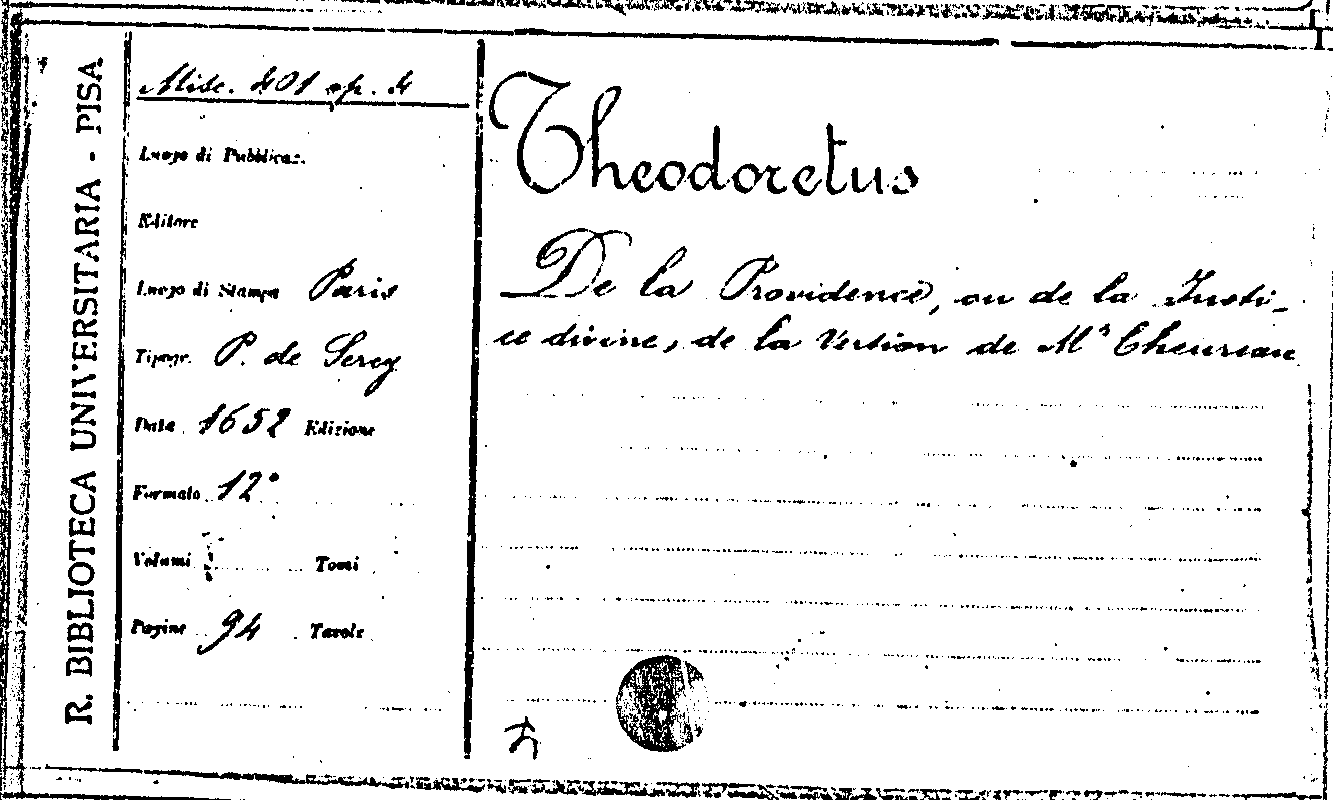 R. BIBLIOTECA UNIVERSITARIA - PISA
Misc. 401 op. 4
Luogo di Pubblicaz.
Editore
Luogo di Stampa Paris
Tipogr. P. de Sercy
Data 1652 Edizione
Formato 12°
Volumi Tomi
Pagine 94 Tavole
Theodoretus
De la Providence, ou de la Justi-
ce divine, de la Version de Mr Cheureau